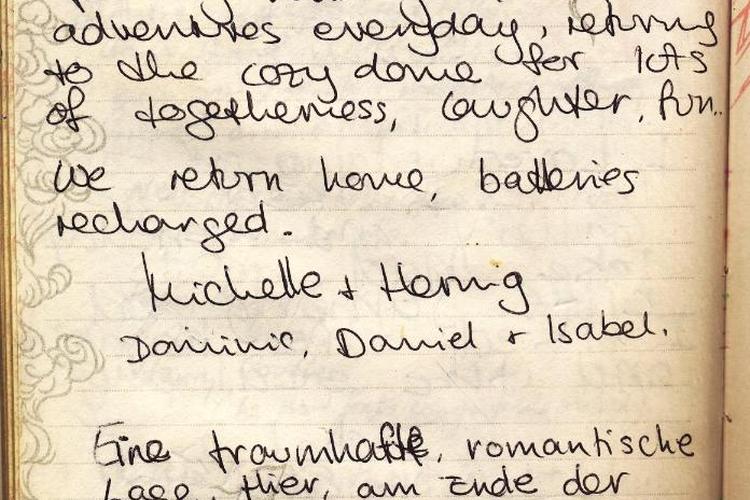 adventures everyday, returning
to the cozy dome for lots
of togetherness, laughter, fun..
We return home, batteries
recharged.
Michelle + Hennig
Dominic, Daniel + Isabel.
Eine traumhafte, romantische
Lage. Hier, am Ende der